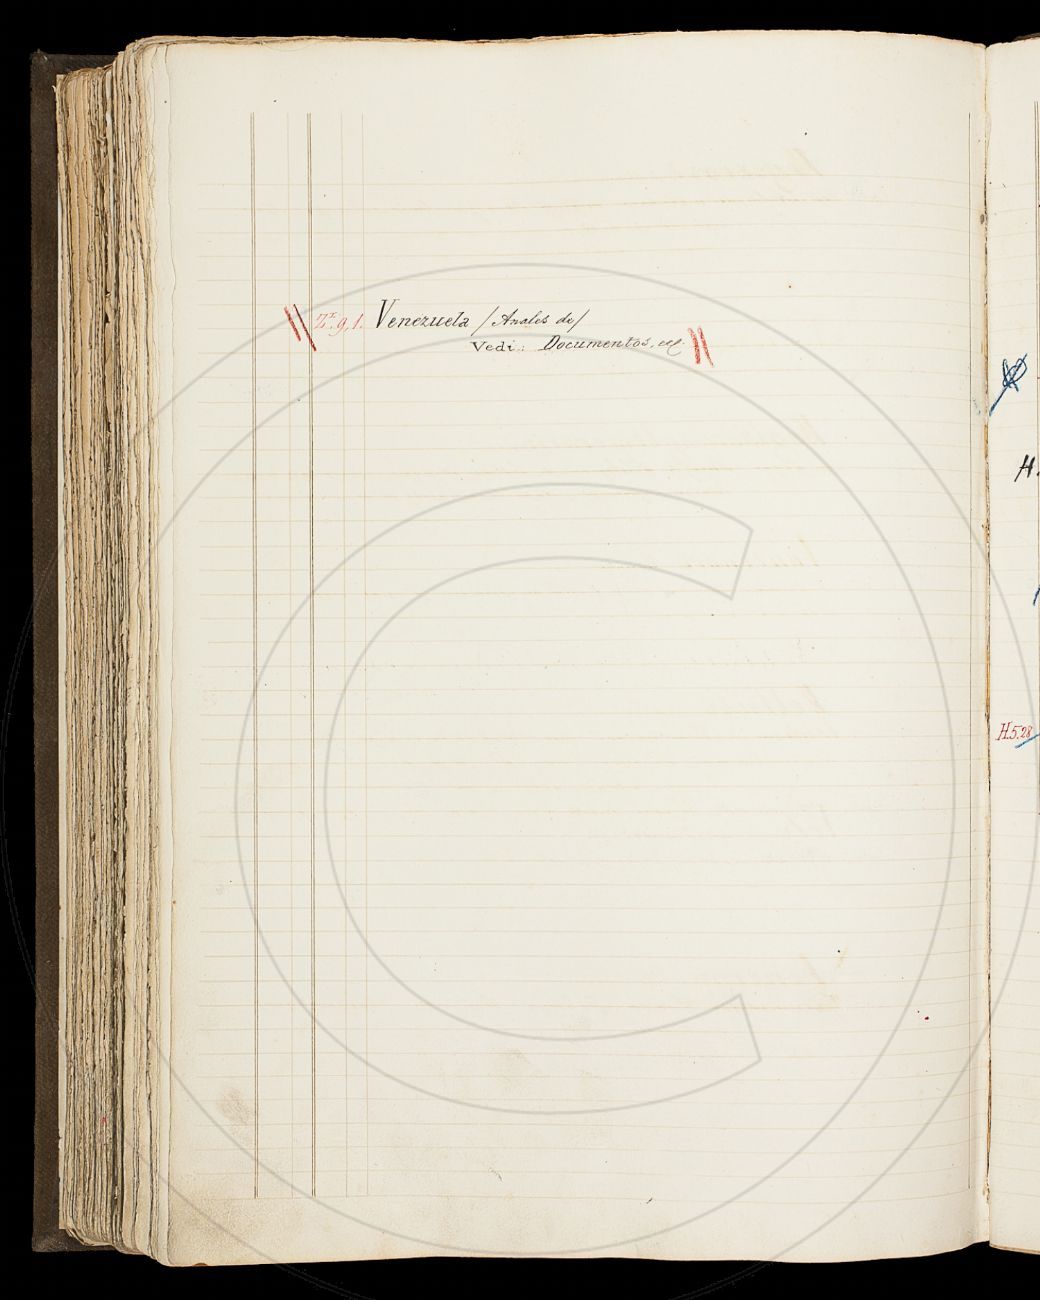 Zr. 9, 1. Venezuela / Anales de /
Vedi: Documentos,
H.
H.5.28